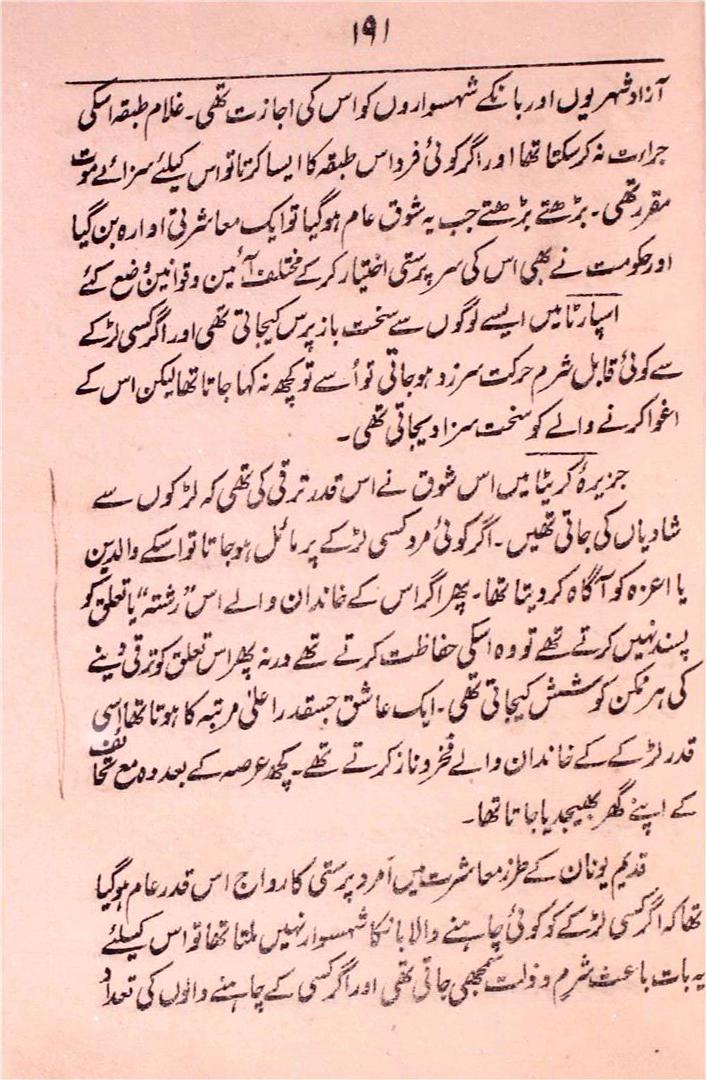 ۱۹۱
آزاد شہریوں اور بانکے شہسواروں کو اس کی اجازت تھی۔ غلام طبقہ اسکی
جراءت نہ کر سکتا تھا اور اگر کوئی فرد اس طبقہ کا ایسا کرتا تو اس کیلئے سزائے موت
مقرر تھی۔ بڑھتے بڑھتے جب یہ شوق عام ہوگیا تو ایک معاشرتی ادارہ بن گیا
اور حکومت نے بھی اس کی سرپرستی اختیار کرکے مختلف آئین و قوانین وضع کئے
اسپارٹا میں ایسے لوگوں سے سخت باز پرس کیجاتی تھی اور اگر کسی لڑکے
سے کوئی قابل شرم حرکت سرزد ہو جاتی تو اُسے تو کچھ نہ کہا جاتا تھا لیکن اس کے
اغوا کرنے والے کو سخت سزا دیجاتی تھی۔
جزیرۂ کریٹا میں اس شوق نے اس قدر ترقی کی تھی کہ لڑکوں سے
شادیاں کی جاتی تھیں۔ اگر کوئی مرد کسی لڑکے پر مائل ہو جاتا تو اسکے والدین
یا اعزہ کو آگاہ کر دیتا تھا۔ پھر اگر اس کے خاندان والے اس "رشتہ" یا تعلق کو
پسند نہیں کرتے تھے تو وہ اسکی حفاظت کرتے تھے ورنہ پھر اس تعلق کو ترقی دینے
کی ہر ممکن کوشش کیجاتی تھی۔ ایک عاشق جسقدر اعلیٰ مرتبہ کا ہوتا تھا اسی
قدر لڑکے کے خاندان والے فخر و ناز کرتے تھے۔ کچھ عرصہ کے بعد وہ مع تحائف
کے اپنے گھر بھیجدیا جاتا تھا۔
قدیم یونان کے طرز معاشرت میں اَمرد پرستی کا رواج اس قدر عام ہوگیا
تھا کہ اگر کسی لڑکے کو کوئی چاہنے والا بانکا شہسوار نہیں ملتا تھا تو اس کیلئے
یہ بات باعث شرم و ذلت سمجھی جاتی تھی اور اگر کسی کے چاہنے والوں کی تعداد